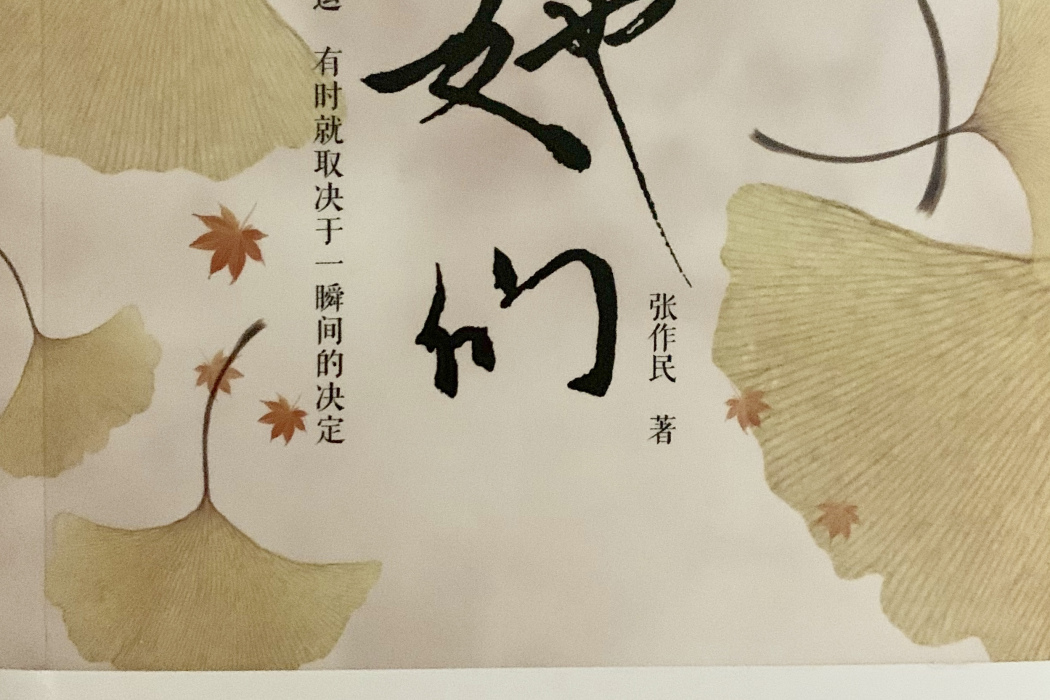 她们
张作民 著
有时就取决于一瞬间的决定